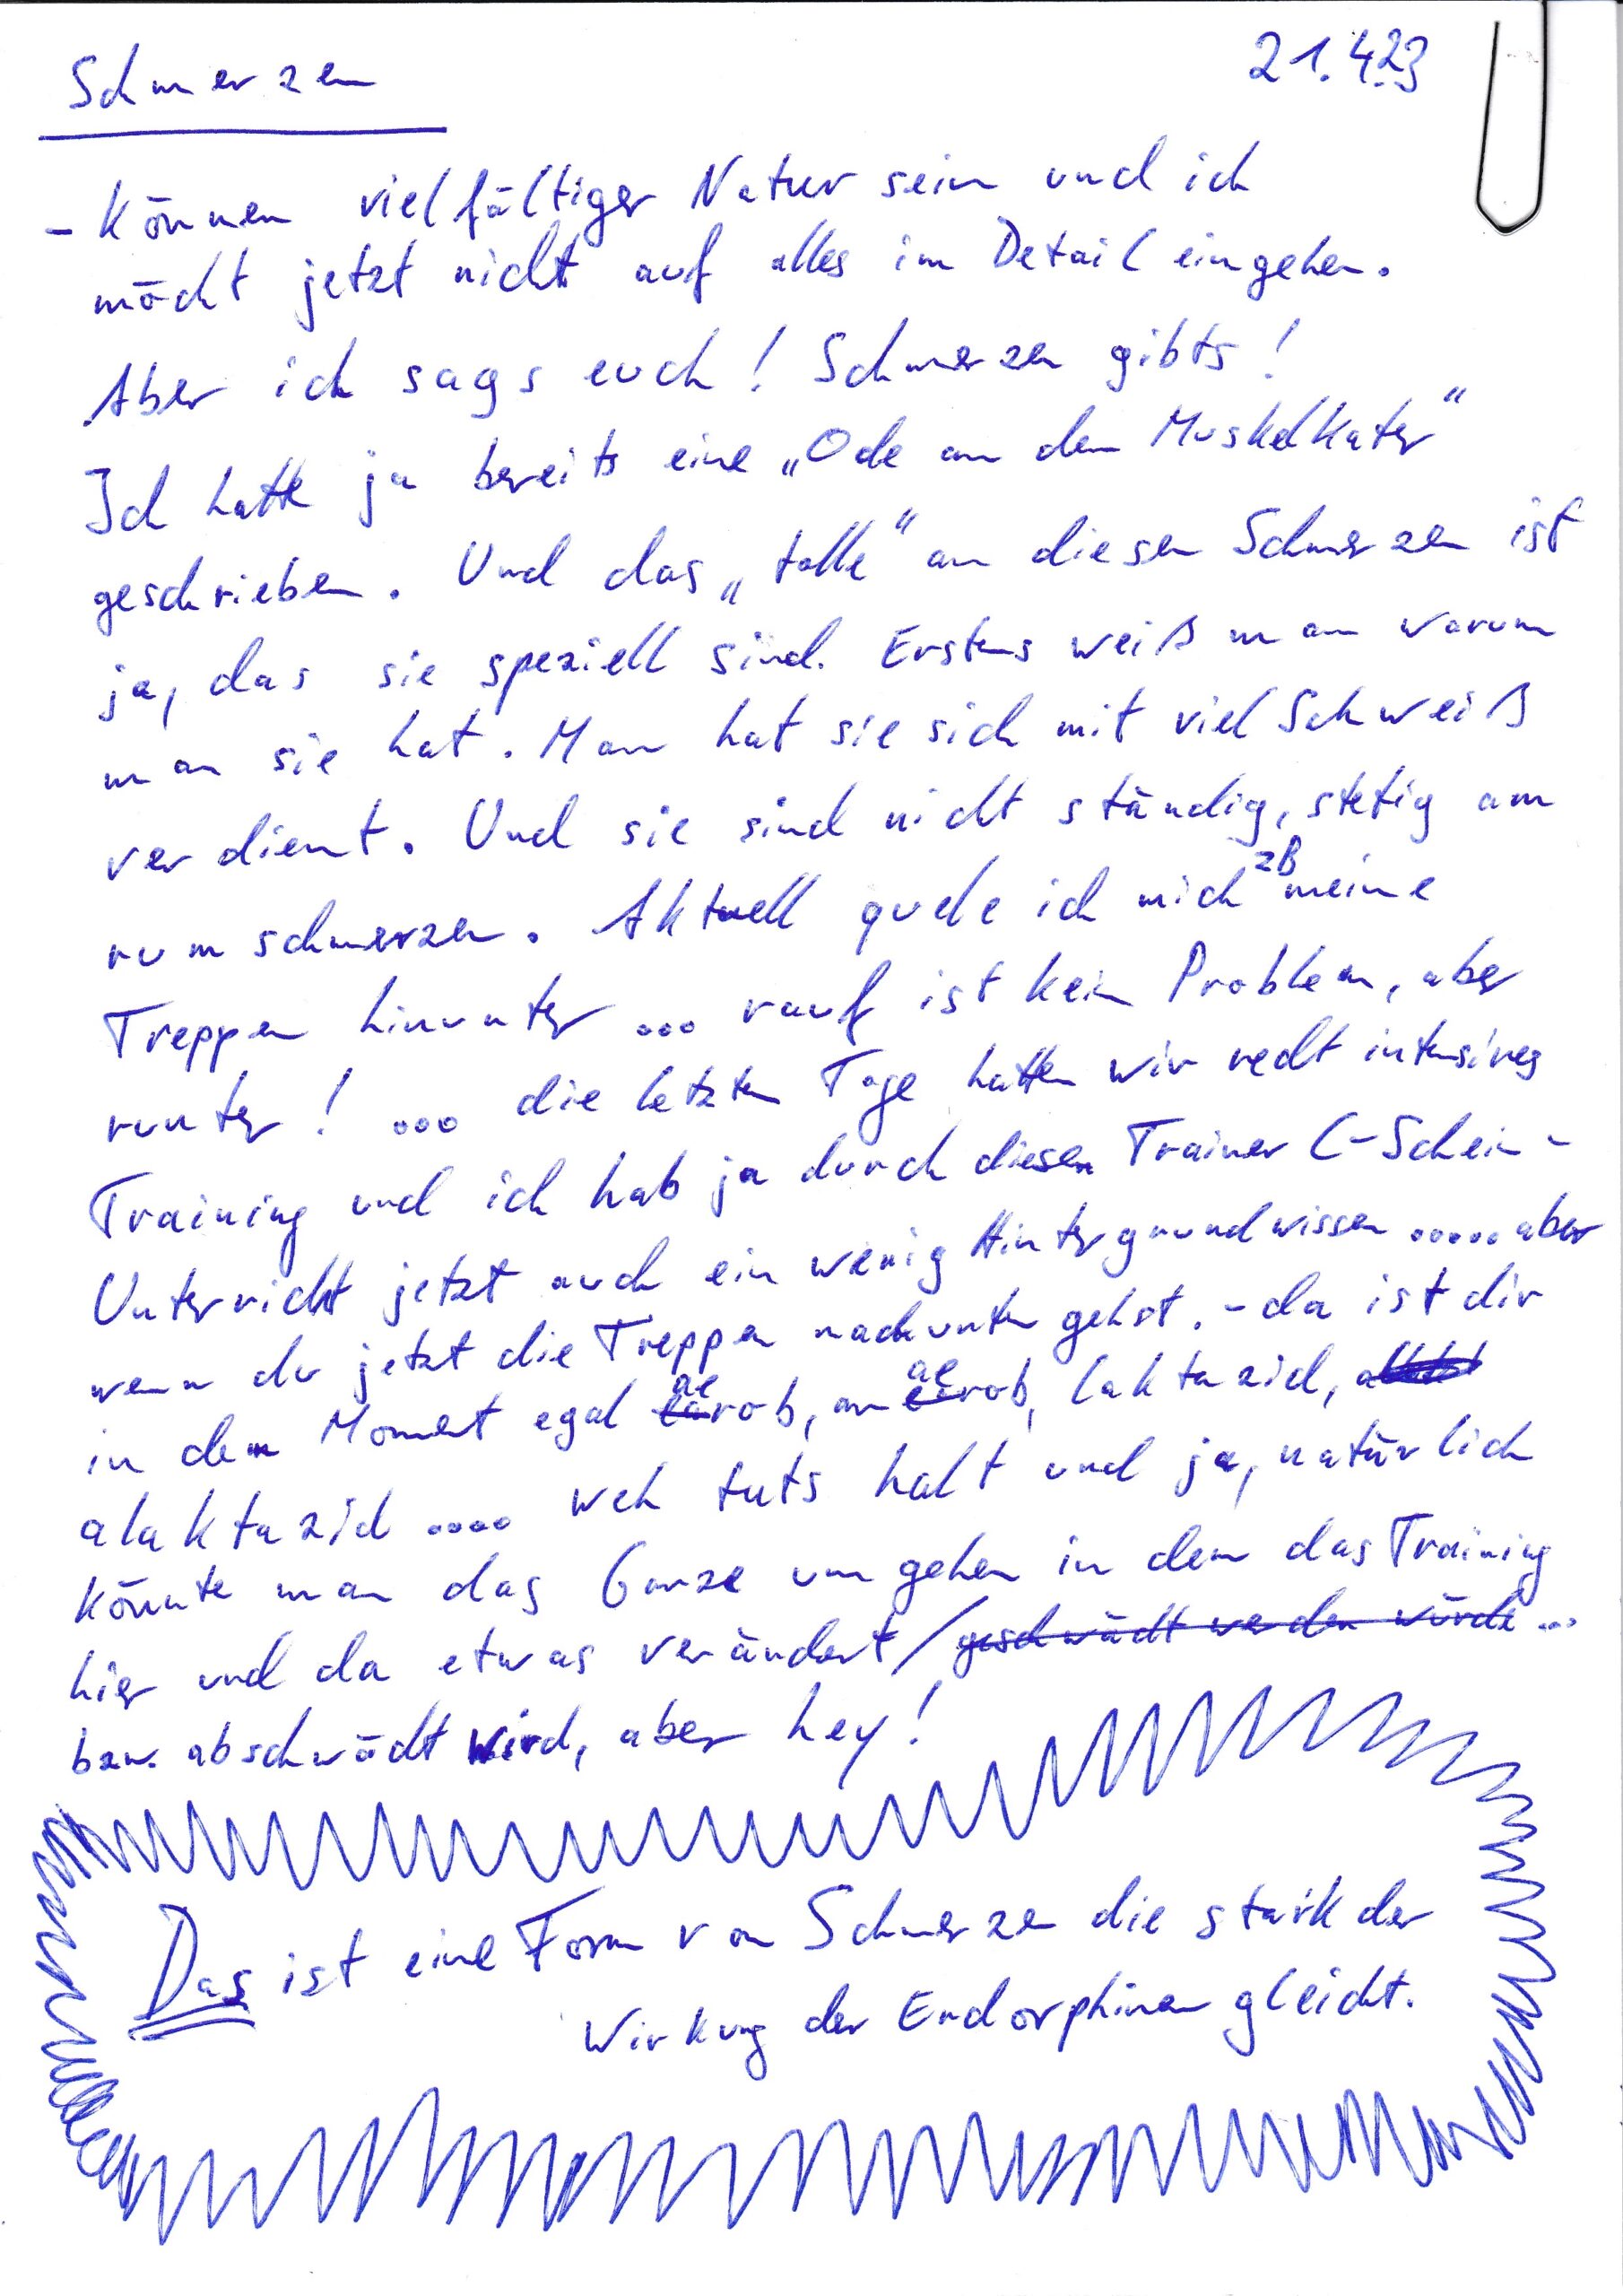 Schmerzen
21.4.23
- können vielfältiger Natur sein und ich
möcht jetzt nicht auf alles im Detail eingehen.
Aber ich sags euch! Schmerzen gibts!
Ich hatte ja bereits eine „Ode an den Muskelkater"
geschrieben. Und das „tolle" an diesen Schmerzen ist
ja, das sie speziell sind. Erstens weiß man warum
man sie hat. Man hat sie sich mit viel Schweiß
verdient. Und sie sind nicht ständig, stetig am
rumschmerzen. Aktuell quäle ich mich zB meine
Treppen hinunter ... rauf ist kein Problem, aber
runter! ... die letzten Tage hatten wir recht intensives
Training und ich hab ja durch diesen Trainer C-Schein-
Unterricht jetzt auch ein wenig Hintergrundwissen ..... aber
wenn du jetzt die Treppen nach unten gehst. - da ist dir
in dem Moment egal aerob, anaerob, laktazid,
alaktazid .... weh tuts halt und ja, natürlich
könnte man das Ganze umgehen in dem das Training
hier und da etwas verändert / geschwächt werden würde ...
bzw. abschwächt wird, aber hey!
Das ist eine Form von Schmerzen die stark der
Wirkung der Endorphinen gleicht.